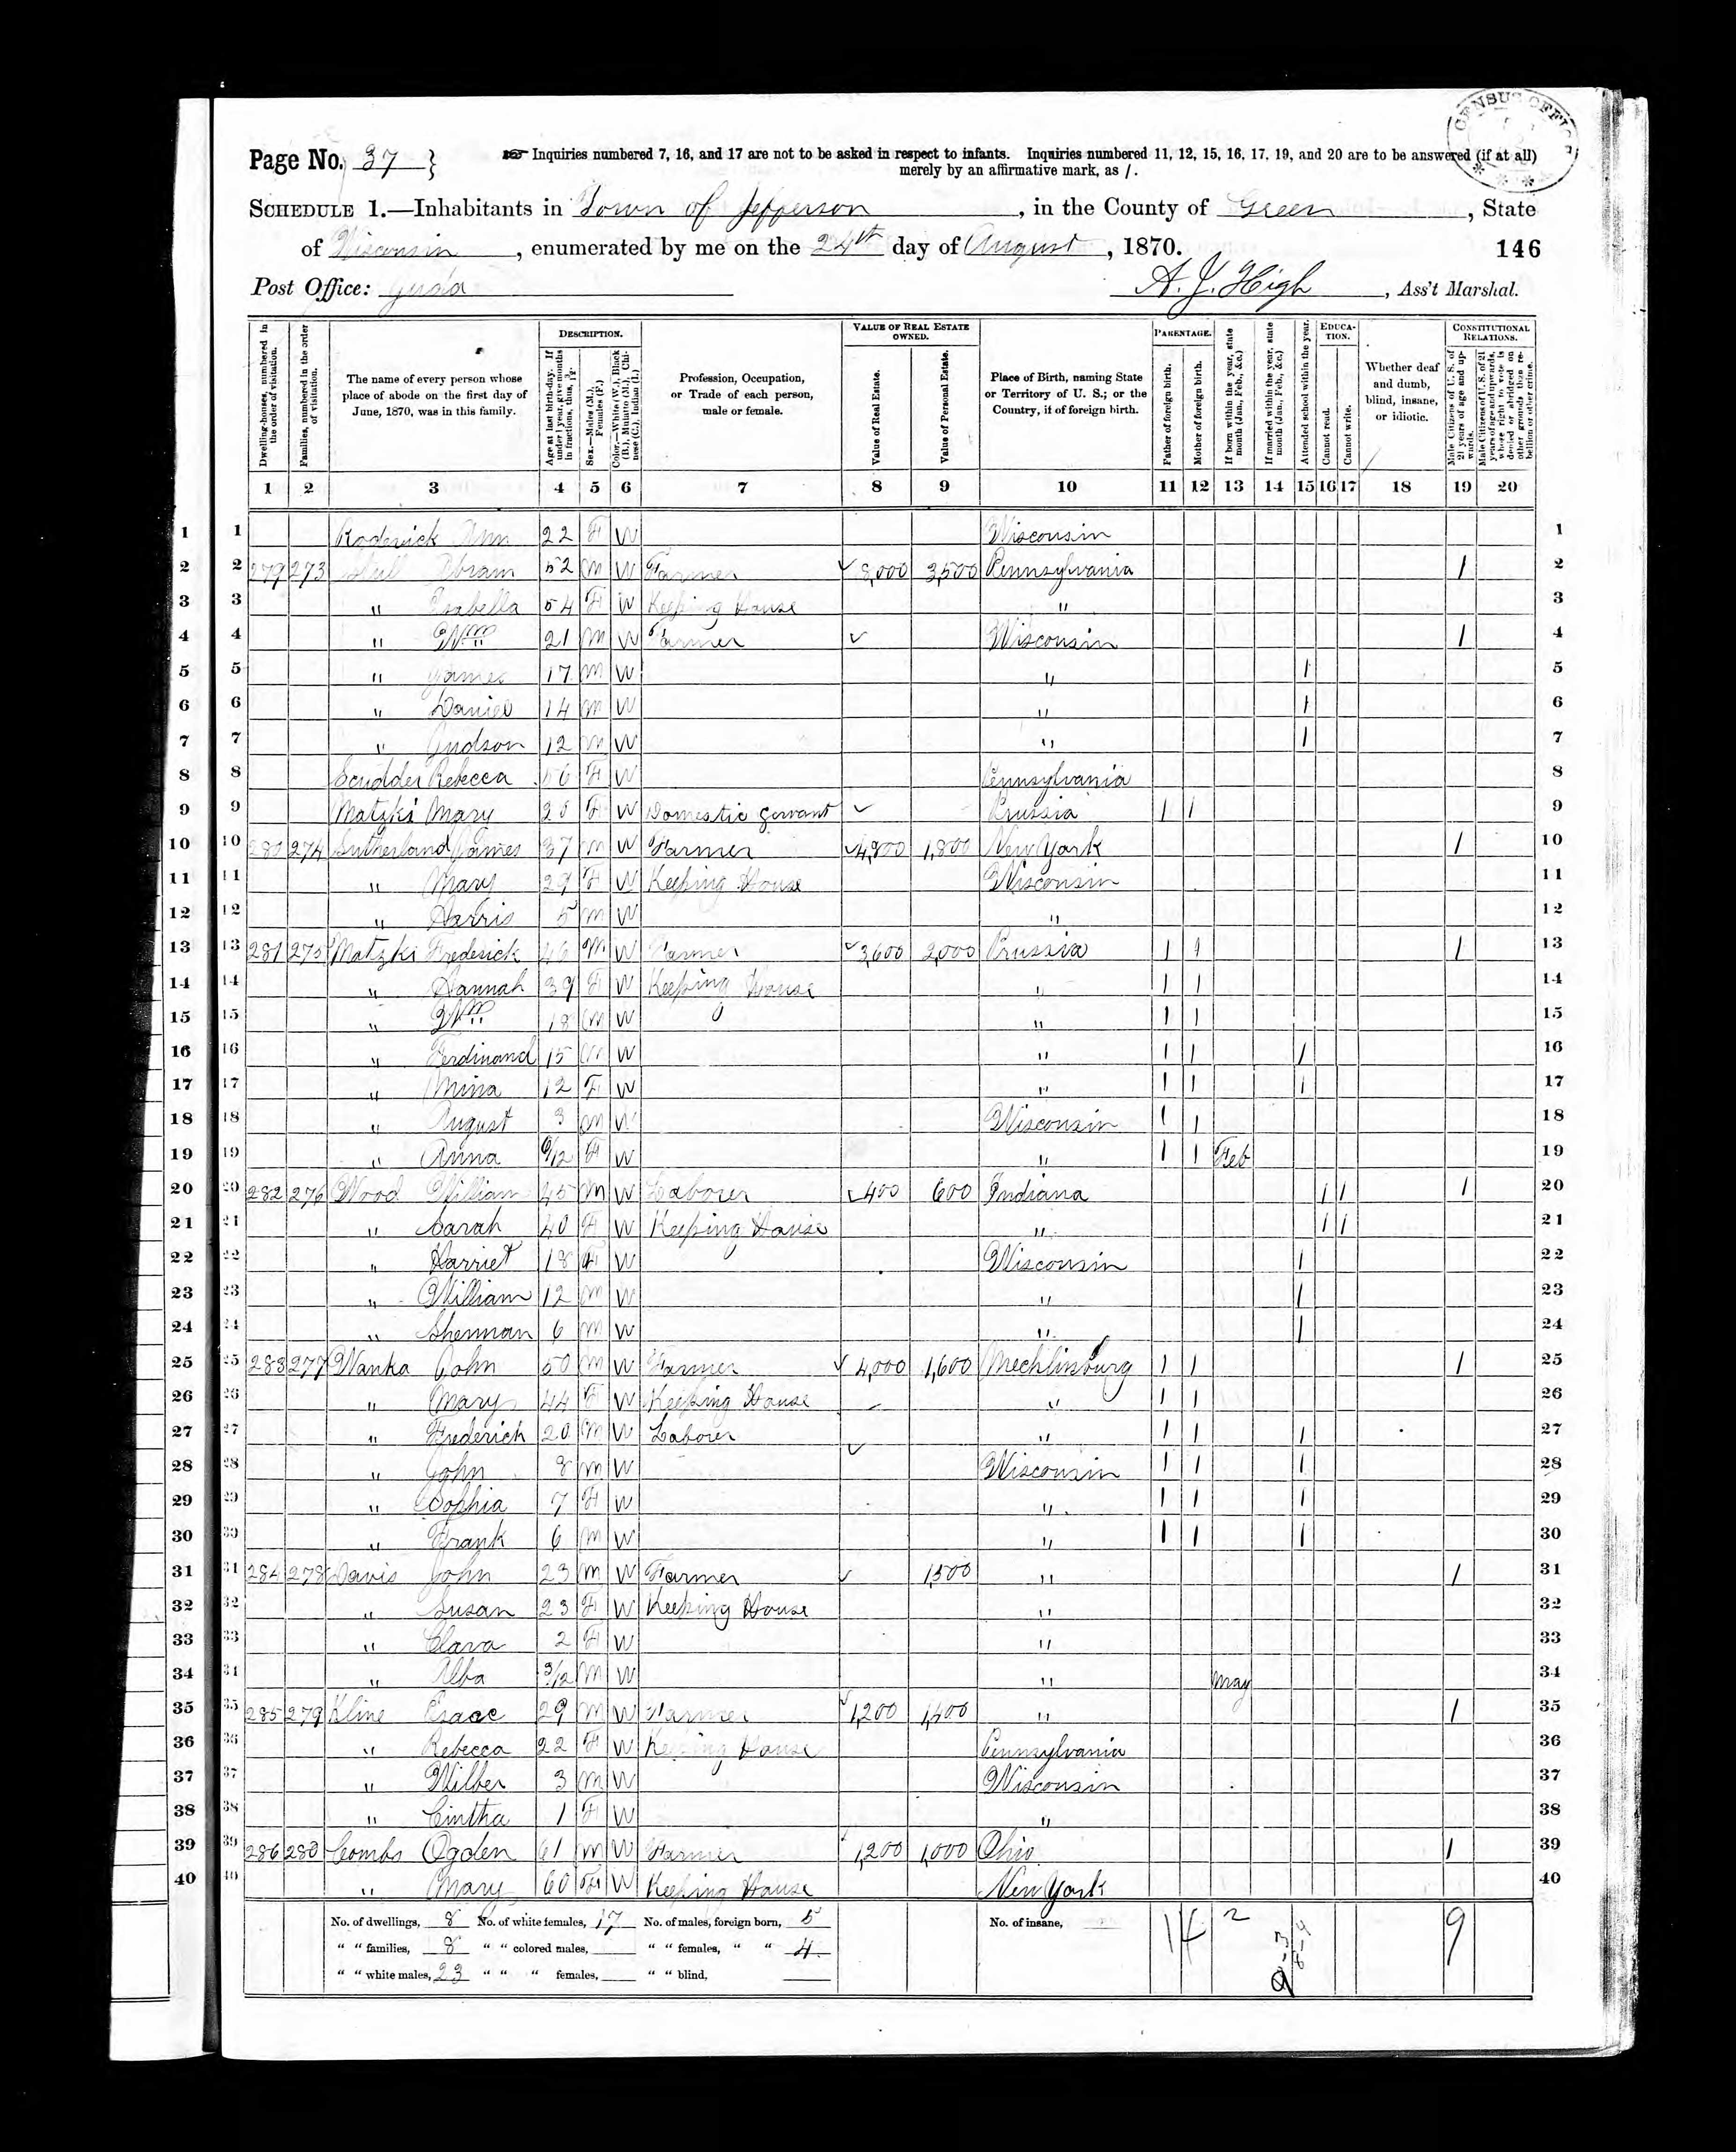 CENSUS OFFICE
Page No. 37 } Inquiries numbered 7, 16, and 17 are not to be asked in respect to infants. Inquiries numbered 11, 12, 15, 16, 17, 19, and 20 are to be answered (if at all)
merely by an affirmative mark, as /.
SCHEDULE 1.—Inhabitants in Town of Jefferson, in the County of Green, State
of Wisconsin, enumerated by me on the 24th day of August, 1870. 146
Post Office: Juda A. J. High, Ass't Marshal.
Dwelling-houses, numbered in the order of visitation.
Families, numbered in the order of visitation.
The name of every person whose place of abode on the first day of June, 1870, was in this family.
DESCRIPTION.
Age at last birth-day. If under 1 year, give months in fractions, thus, 3/12.
Sex.—Males (M.), Females (F.)
Color.—White (W.), Black (B.), Mulatto (M.), Chinese (C.), Indian (I.)
Profession, Occupation, or Trade of each person, male or female.
VALUE OF REAL ESTATE OWNED.
Value of Real Estate.
Value of Personal Estate.
Place of Birth, naming State or Territory of U. S.; or the Country, if of foreign birth.
PARENTAGE.
Father of foreign birth.
Mother of foreign birth.
If born within the year, state month (Jan., Feb., &c.)
If married within the year, state month (Jan., Feb., &c.)
Attended school within the year.
EDUCATION.
Cannot read.
Cannot write.
Whether deaf and dumb, blind, insane, or idiotic.
CONSTITUTIONAL RELATIONS.
Male Citizens of U. S. of 21 years of age and upwards.
Male Citizens of U. S. of 21 years of age and upwards, where right to vote is denied or abridged on other grounds than rebellion or other crime.
1 2 3 4 5 6 7 8 9 10 11 12 13 14 15 16 17 18 19 20
1 1 Roderick Ann 22 F W Wisconsin 1
2 2 279 273 Abram 52 M W Farmer 8,000 3,500 Pennsylvania / 2
3 3 " Isabella 54 F W Keeping House " 3
4 4 " Wm 21 M W Farmer Wisconsin / 4
5 5 " James 17 M W " / 5
6 6 " Daniel 14 M W " / 6
7 7 " Judson 12 M W " / 7
8 8 Scudder Rebecca 56 F W Pennsylvania 8
9 9 Matzki Mary 20 F W Domestic Servant Prussia / / 9
10 10 280 274 Sutherland James 37 M W Farmer 4,800 1,800 New York / 10
11 11 " Mary 29 F W Keeping House Wisconsin 11
12 12 " Harris 5 M W " 12
13 13 281 275 Matzki Frederick 46 M W Farmer 3,600 2,000 Prussia / / / 13
14 14 " Hannah 39 F W Keeping House " / / 14
15 15 " Wm 18 M W " / / 15
16 16 " Ferdinand 15 M W " / / / 16
17 17 " Mina 12 F W " / / / 17
18 18 " August 3 M W Wisconsin / / 18
19 19 " Anna 6/12 F W " / / Feb 19
20 20 282 276 Wood William 45 M W Laborer 400 600 Indiana / / / 20
21 21 " Sarah 40 F W Keeping House " / / 21
22 22 " Harriet 18 F W Wisconsin / 22
23 23 " William 12 M W " / 23
24 24 " Sherman 6 M W " / 24
25 25 283 277 Wanka John 50 M W Farmer 4,000 1,600 Mechlinburg / / / 25
26 26 " Mary 44 F W Keeping House " / / 26
27 27 " Frederick 20 M W Laborer " / / / 27
28 28 " John 8 M W Wisconsin / / / 28
29 29 " Sophia 7 F W " / / / 29
30 30 " Frank 6 M W " / / / 30
31 31 284 278 Davis John 23 M W Farmer 1,500 " / 31
32 32 " Susan 23 F W Keeping House " 32
33 33 " Clara 2 F W " 33
34 34 " Alba 3/12 M W " May 34
35 35 285 279 Kline Isaac 29 M W Farmer 1,200 1,400 " / 35
36 36 " Rebecca 22 F W Keeping House Pennsylvania 36
37 37 " Wilber 3 M W Wisconsin 37
38 38 " Cintha 1 F W " 38
39 39 286 280 Combs Ogden 61 M W Farmer 1,200 1,000 Ohio / 39
40 40 " Mary 60 F W Keeping House New York 40
No. of dwellings, 8 No. of white females, 17 No. of males, foreign born, 5 No. of insane, 14 2 9
" " families, 8 " " colored males, " " females, " " 4
" " white males, 23 " " " females, " " blind,